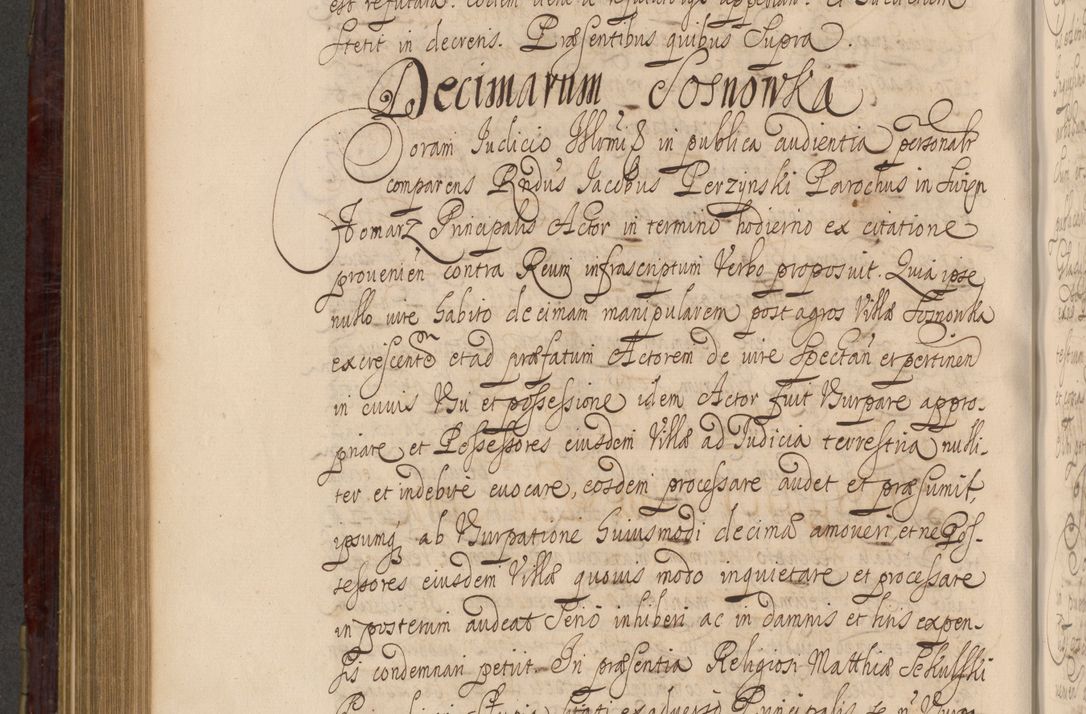 stetit in decrens. Præsentibus quibus Supra.
Decimarum Sosnowka
Coram Judicio Illomiß in publica audientia personalr
comparens Rndus Jacobus Perzynski Parochus in Swign
Tomarz Principalis Actor in termino hodierno ex citatione
provenien contra Reum infrascriptum Verbo proposuit. Quia ipse
nullo iure habito decimam manipularem post agros Villæ Sosnowka
excrescente et ad præfatum Actorem de iure Spectan et pertinen
in cuius Usu et possessione idem Actor fuit Usurpare appro-
priare et Possessores eiusdem Villæ ad Judicia terrestria nulli-
ter et indebite evocare, eosdem processare audet et præsumit,
ipsumq ab Usurpatione huiusmodi decimæ amoveri, et ne Pos-
sessores eiusdem Villæ quovis modo inquietare et processare
in posterum audeat Serio inhiberi ac in damnis et litis expen-
sis condemnari petiit. In præsentia Religiosi Matthiæ